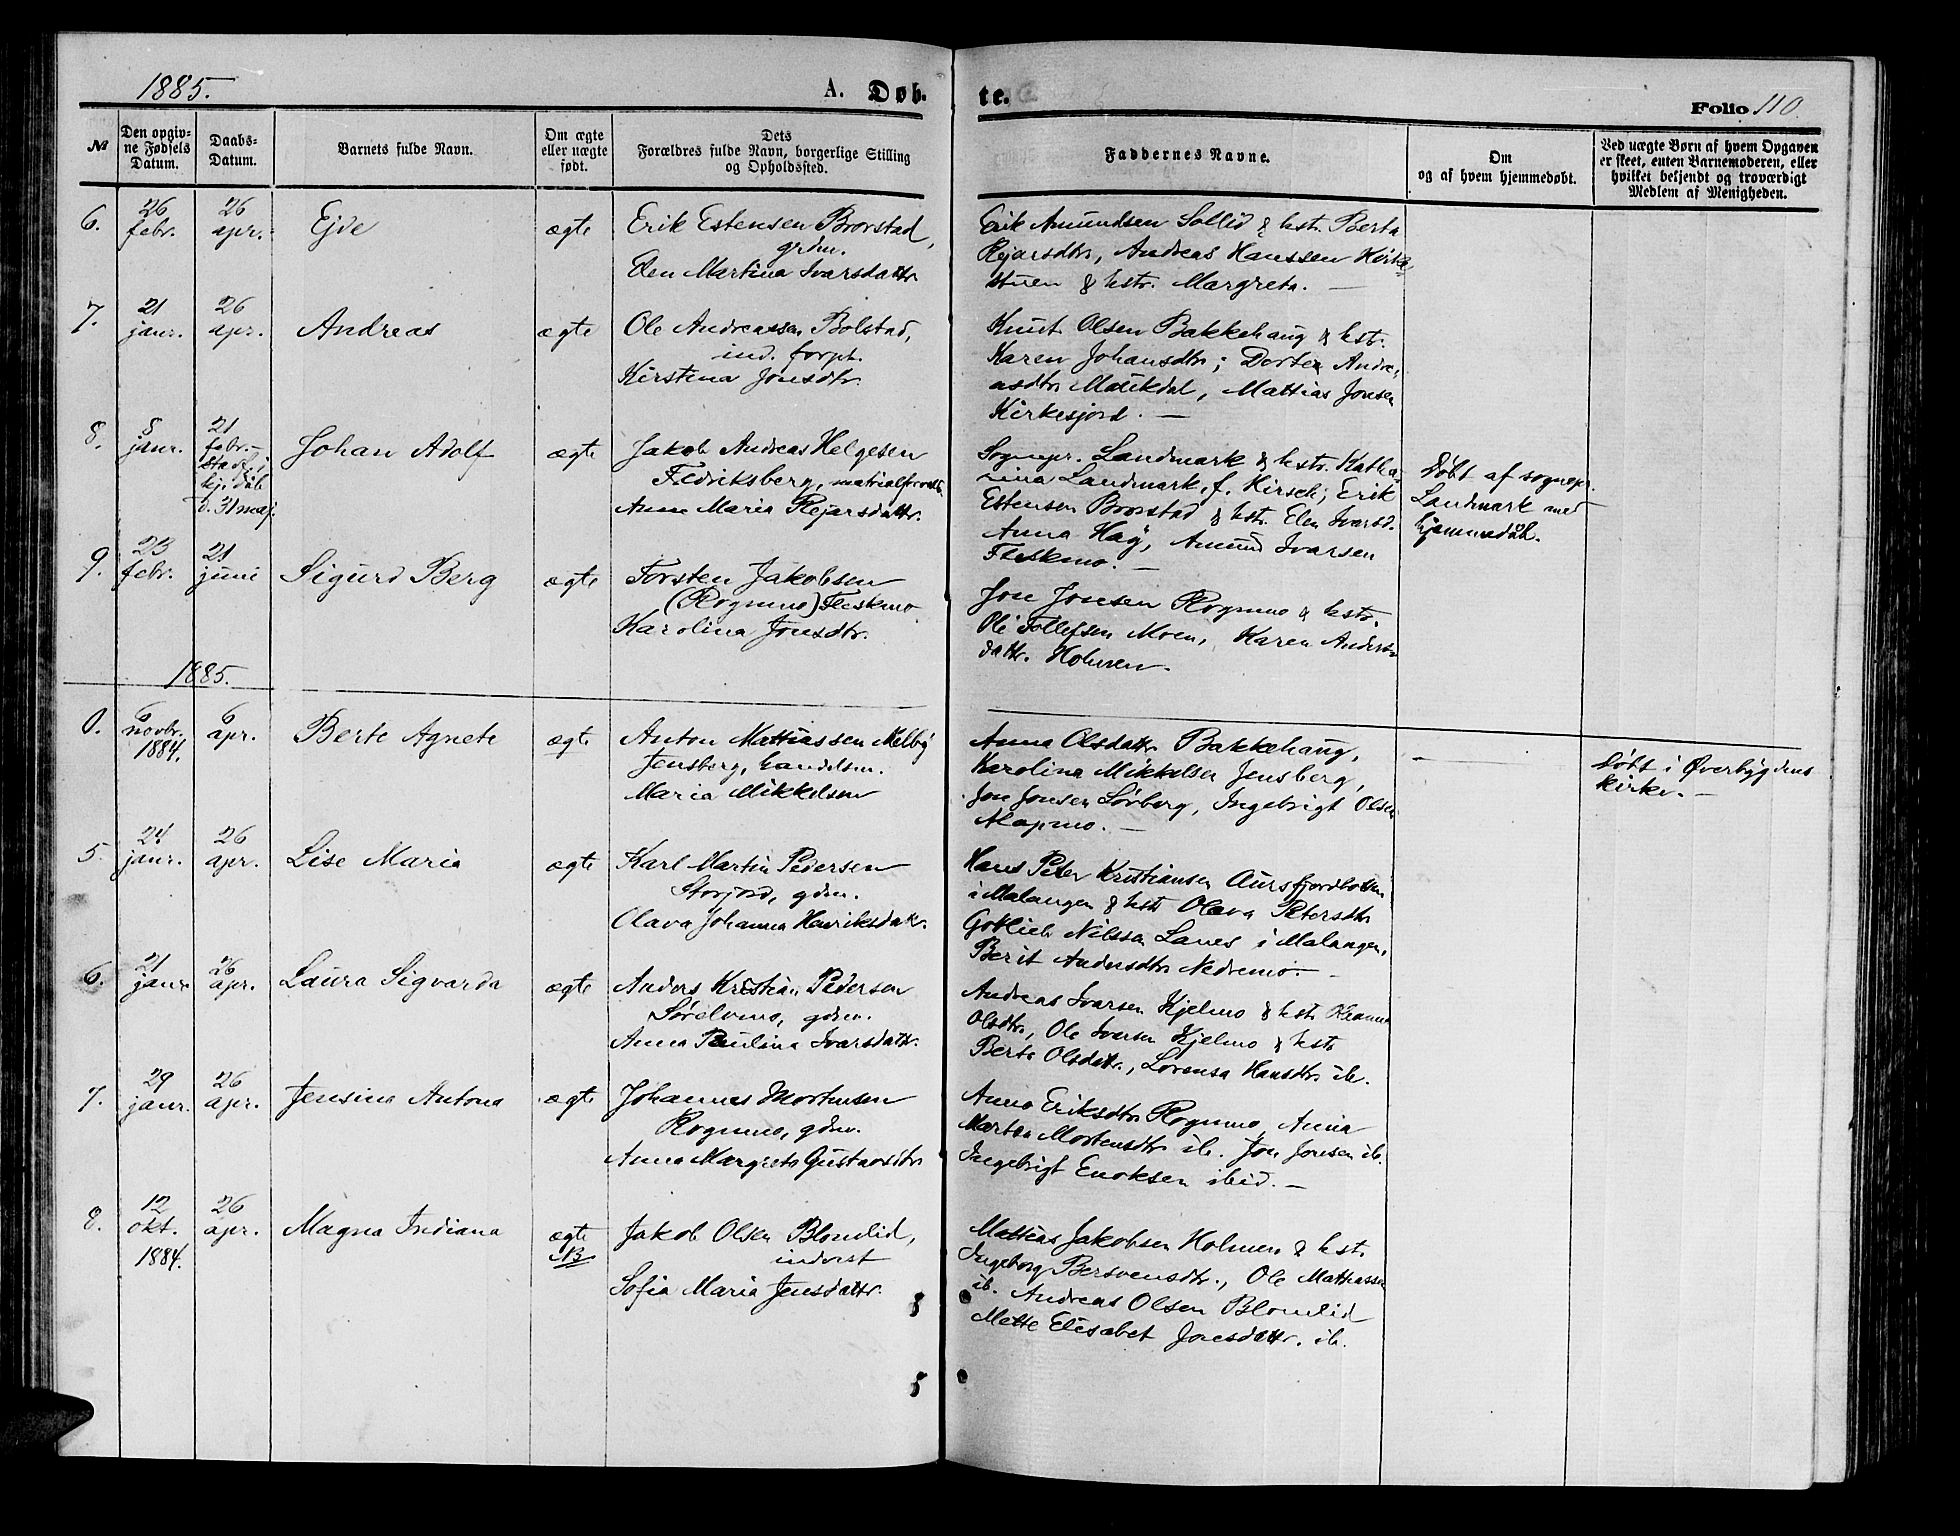 1885.
A. Døb-
te.
Folio 110.
№
Den opgiv-
ne Fødsels
Datum.
Daabs-
Datum.
Barnets fulde Navn.
Om ægte
eller uægte
født.
Dets
Forældres fulde Navn, borgerlige Stilling
og Opholdssted.
Faddernes Navne.
Om
og af hvem hjemmedøbt.
Ved uægte Børn af hvem Opgaven
er skeet, enten Barnemoderen, eller
hvilket bekjendt og troværdigt
Medlem af Menigheden.
6.
26
febr.
26
apr.
Ejde
ægte
Erik Estensen Brorstad,
grdm.
Elen Martina Ivarsdattr.
Erik Amundsen Sollid & kstr. Berta
Pejarsdtr, Andreas Hanssen Kirke-
stuen & kstr. Margreta. —
7.
21
janr.
26
apr.
Andreas
ægte
Ole Andreassen Bolstad,
ind. forp.
Kirstina Jonsdtr.
Knut Olsen Bakkehaug & kstr.
Karen Johansdtr; Dortea Andre-
asdtr Maukdal, Mattias Jonsen
Kirkesjord. —
8.
8
janr.
21
febr. —
stadf. i
kj. dåb
d. 31 maj.
Johan Adolf
ægte
Jakob Andreas Helgesen
Fredriksberg, matrialforvalt.
Anne Maria Pejarsdattr.
Sognepr. Landmark & kstr. Katha-
rina Landmark, f. Hirsch; Erik
Estensen Brorstad & kstr. Elen Ivarsd.
Anna Haj, Amund Ivarsen
Fleskmo. —
Døbt af sognepr.
Landmark med
hjemmedåb.
9.
23
febr.
21
juni
Sigurd Berg
ægte
Torsten Jakobsen
(Rognmo) Fleskmo
Karolina Jonsdtr.
Jon Jonsen Rognmo & kstr.
Ole Tollefsen Moen, Karen Anders-
dattr. Holmen.
1885.
0.
6
novbr.
1884.
6
apr.
Berte Agnete
ægte
Anton Mattiassen Melby
Jensberg, handelsm.
Maria Mikkelsen
Anna Olsdattr Bakkehaug,
Karolina Mikkelsen Jensberg,
Jon Jonsen Sørberg, Ingebrigt Olsen
Alapmo. —
døbt i Øverbygdens
kirke. —
5.
24
janr.
26
apr.
Lise Maria
ægte
Karl Martin Pedersen
Storjord, gdm.
Olava Johanna Henriksdatr.
Hans Peter Kristiansen Aursfjordbotten
i Malangen & kstr Olava Petersdtr
Gotlieb Nilssen Lanes i Malangen,
Berit Andersdtr Nedremo. —
6.
21
janr
26
apr.
Laura Sigvarda
ægte
Anders Kristian Pedersen
Sørelvmo, gdm.
Anna Paulina Ivarsdattr.
Andreas Ivarsen Kjelmo & kstr Oleanna
Olsdtr, Ole Ivarsen Kjelmo & kstr
Berte Olsdattr., Lorensa Hansdtr ib.
7.
29
janr.
26
apr.
Jensina Antona
ægte
Johannes Mortensen
Rognmo, gdm.
Anna Margreta Gustavsdtr
Anna Eriksdtr Rognmo, Anna
Marta Mortensdtr ib. Jon Jonsen ib.
Ingebrigt Enoksen ibid. —
8.
12
okt.
1884.
26
apr.
Magna Indiana
ægte
NB
Jakob Olsen Blomlid,
inderst
Sofia Maria Jensdattr.
Mattias Jakobsen Holmen & kstr.
Ingeborg Bersvensdtr., Ole Mathiassen
ib. Andreas Olsen Blomlid
Mette Elisabet Jonesdattr. ib.